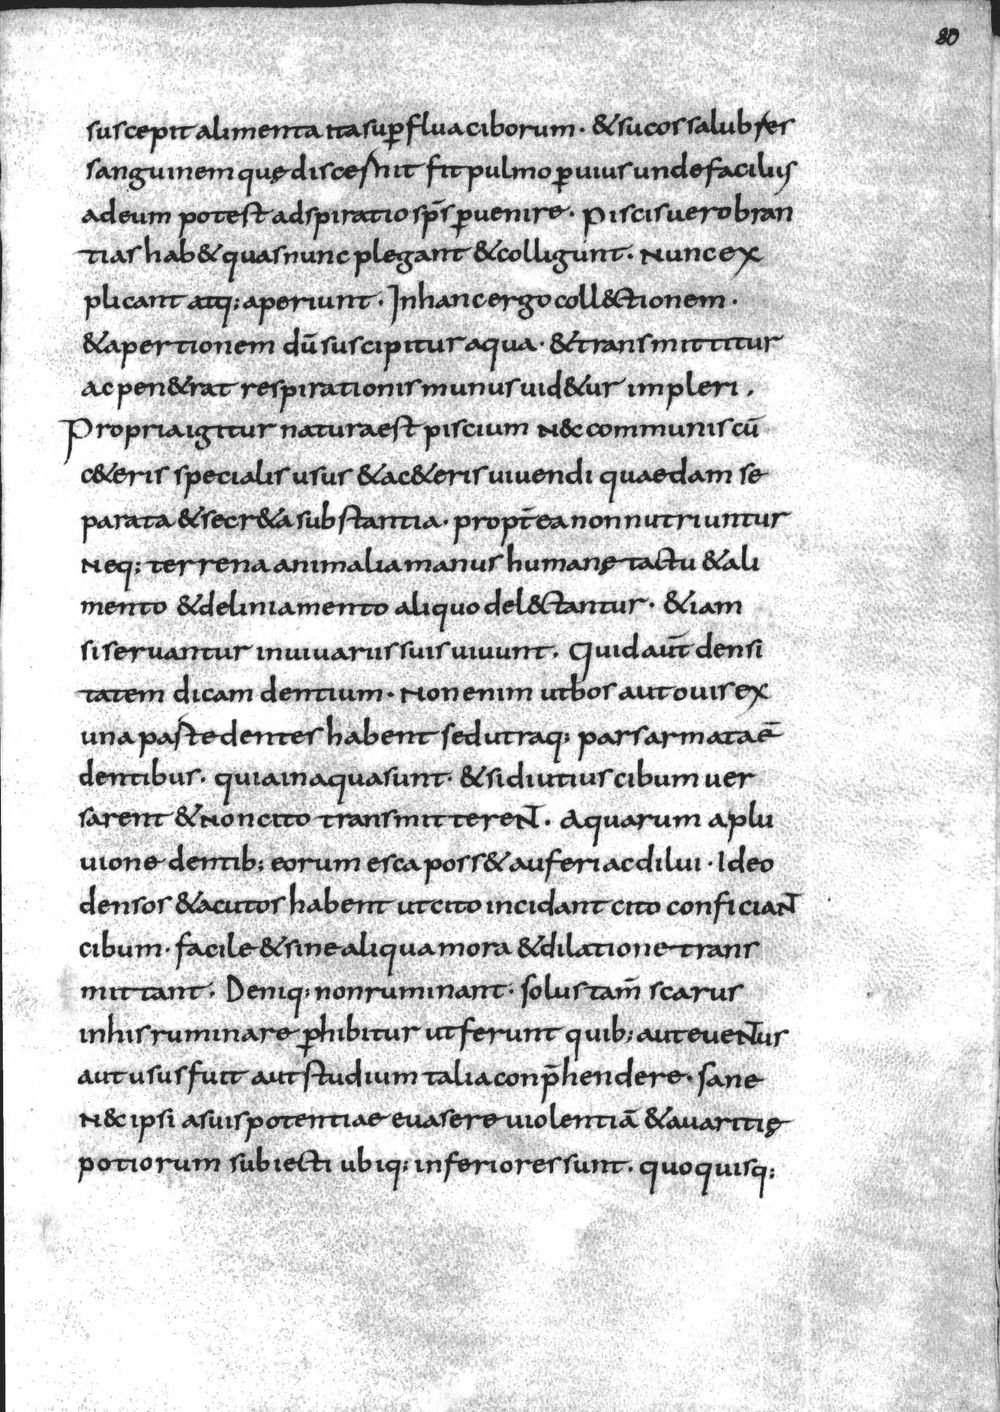 80
suscepit alimenta ita sup̱flua ciborum · & sucos salubres
sanguinem quę discernit fit pulmo p̱uius unde facilius
ad eum potest adspiratio sp̄s p̱uenire · piscis uero bran
tias hab& quas nunc plegant & colligunt · Nunc ex
plicant atq; aperiunt · In hanc ergo coll&ctionem ·
& apertionem dū suscipitur aqua · & transmittitur
ac pen&rat respirationis munus uid&ur impleri ,
Propria igitur natura est piscium N&c communis cū
c&eris specialis usus & a c&eris uiuendi quaedam se
parata & secr&a substantia · propt̄ea non nutriuntur
Neq; terrena animalia manus humanę tactu & ali
mento & deliniamento aliquo del&ctantur · & iam
si seruantur in uiuariis suis uiuunt . Quid aut̄ densi
tatem dicam dentium · Non enim ut bos aut ouis ex
una parte dentes habent sed utraq; pars armata ē
dentibus . quia in aqua sunt · & si diutius cibum uer
sarent & Non cito transmitterent . Aquarum apłu
uione dentib; eorum esca poss& auferi ac dilui · Ideo
densos & acutos habent ut cito incidant cito conficiant
cibum · facile & sine aliqua mora & dilatione trans
mittant . Deniq; non ruminant · solus tam̄ scarus
in his ruminare p̱hibitur ut ferunt quib; aut euentus
aut usus fuit aut studium talia conp̄hendere · sane
N&c ipsi a suis potentiae euasere uiolentiā & auaritię
potiorum subiecti ubiq; inferiores sunt · quo quisq;